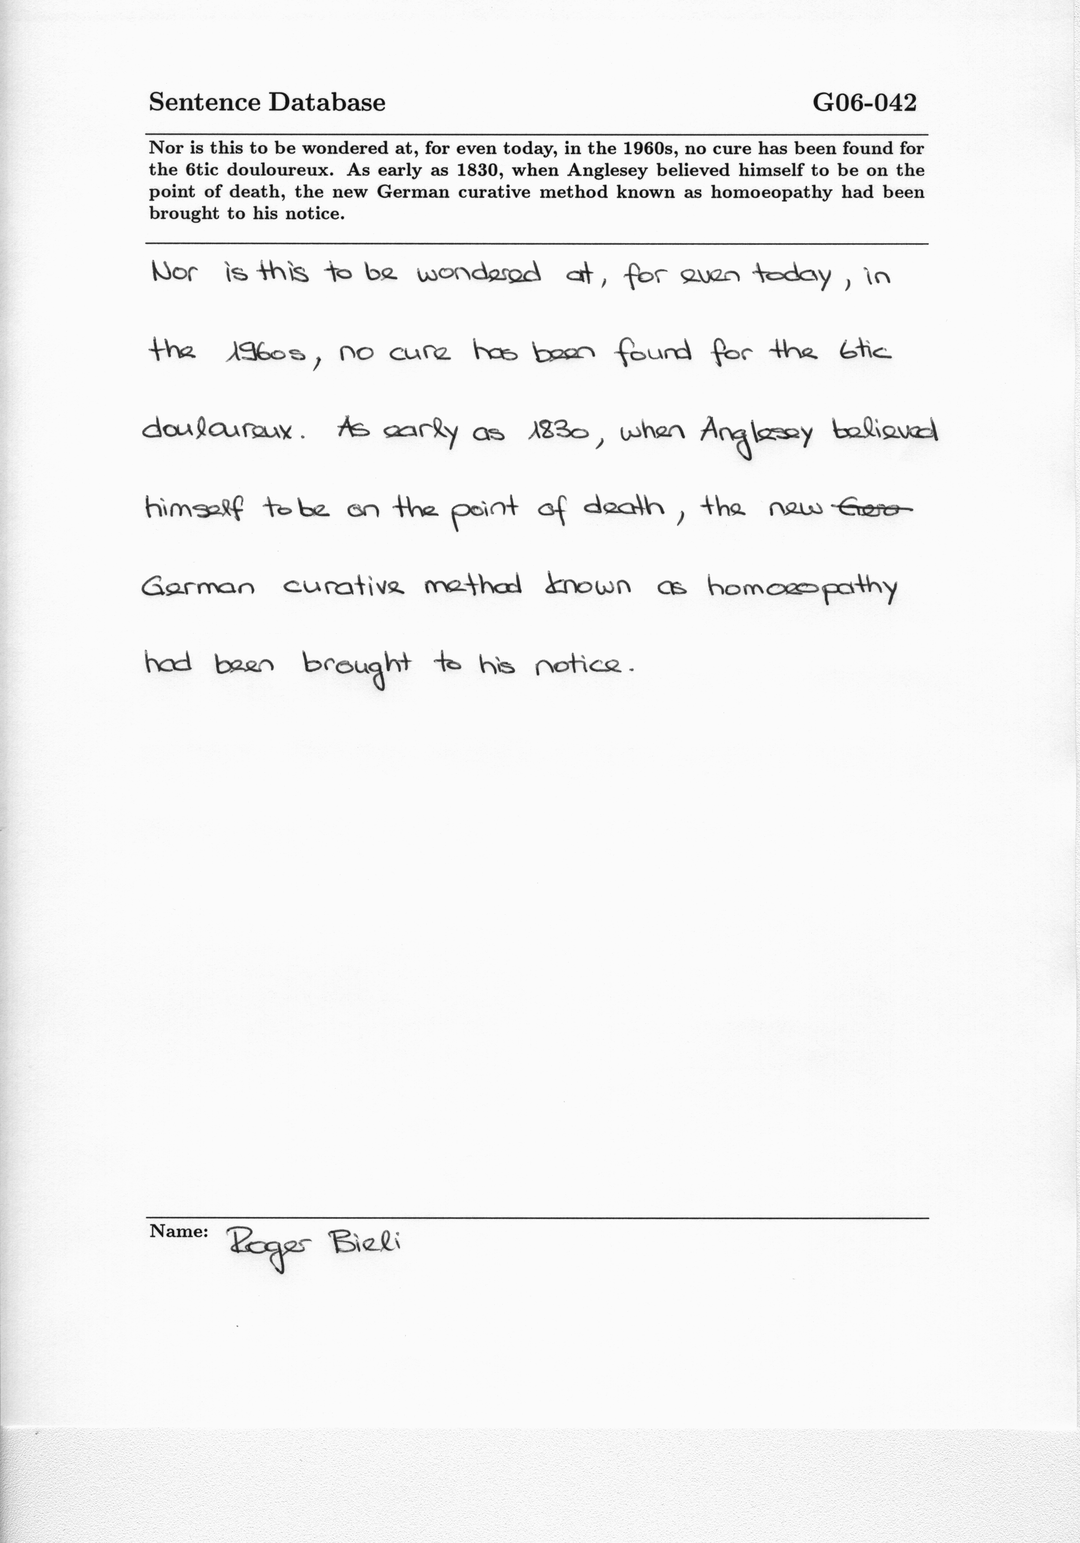 Sentence Database G06-042
Nor is this to be wondered at, for even today, in the 1960s, no cure has been found for
the 6tic douloureux. As early as 1830, when Anglesey believed himself to be on the
point of death, the new German curative method known as homoeopathy had been
brought to his notice.
Nor is this to be wondered at, for even today, in
the 1960s, no cure has been found for the 6tic
douloureux. As early as 1830, when Anglesey believed
himself to be on the point of death, the new
German curative method known as homoeopathy
had been brought to his notice.
Name: Roger Bieli